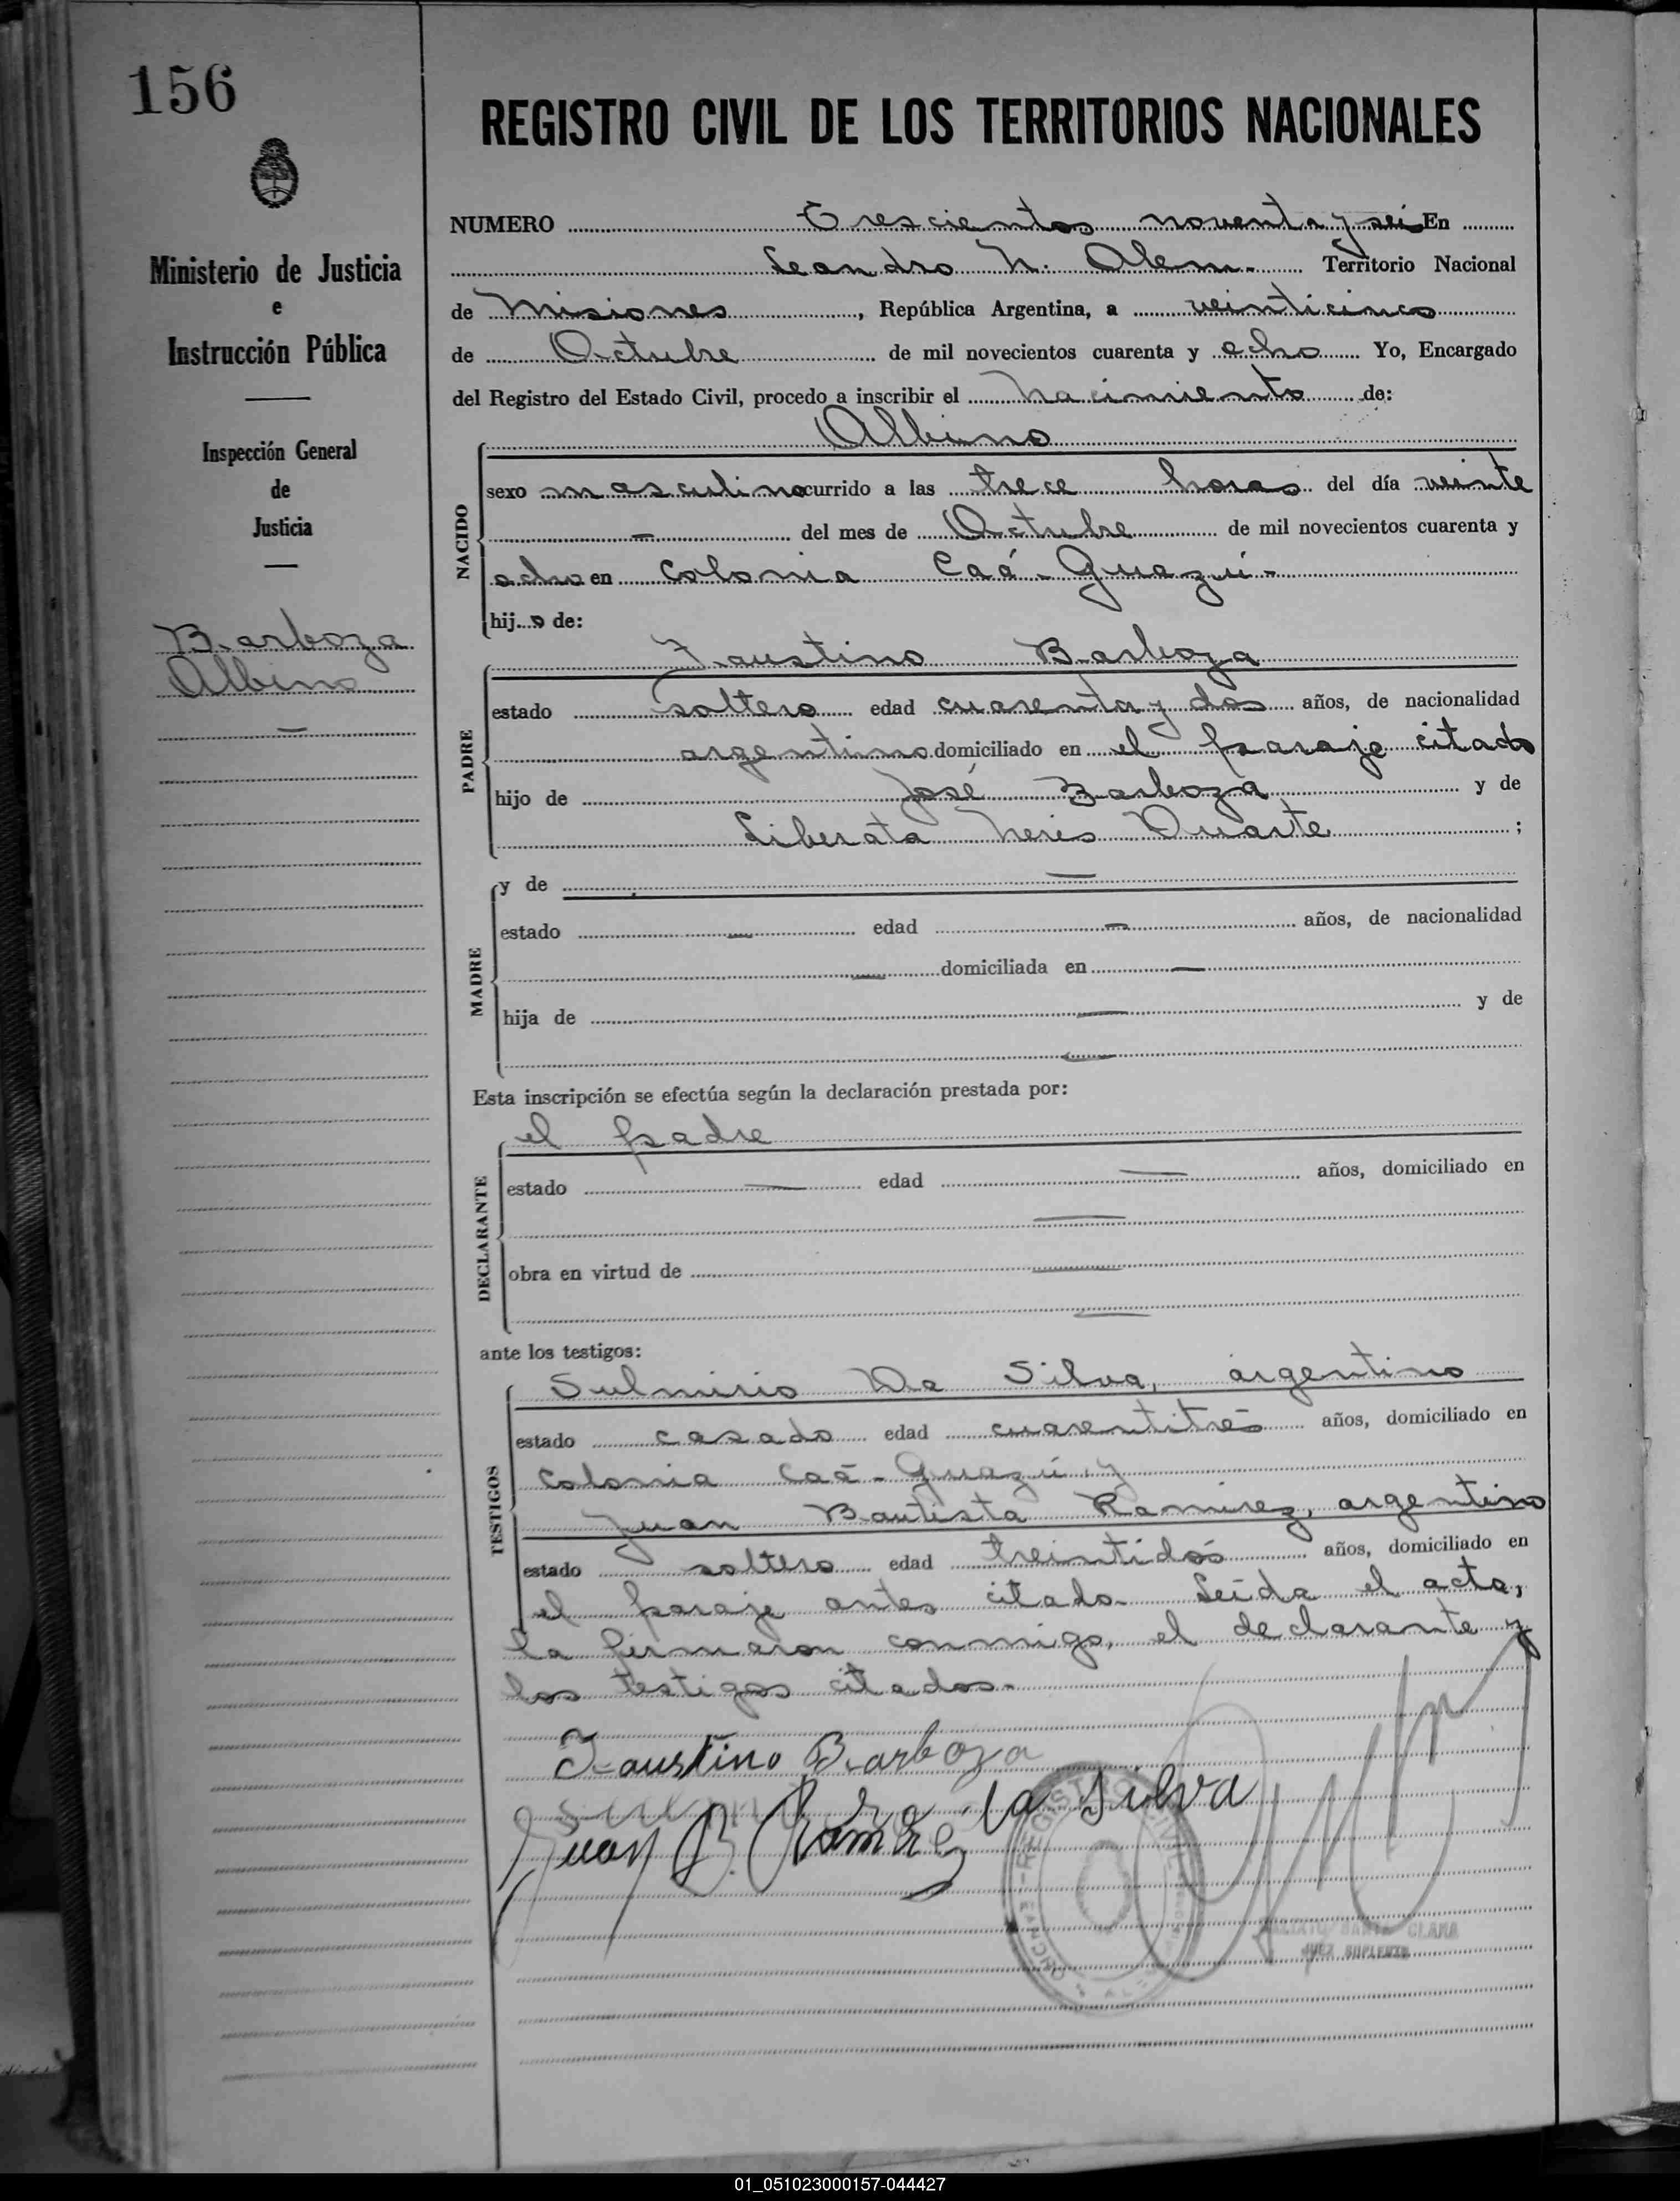 156
REGISTRO CIVIL DE LOS TERRITORIOS NACIONALES
Ministerio de Justicia
e
Instrucción Pública
Inspección General
de
Justicia
Barboza
Albino
NUMERO Trescientos noventa y seis En
Leandro N. Alem. Territorio Nacional
de Misiones, República Argentina, a veinticinco
de Octubre de mil novecientos cuarenta y ocho Yo, Encargado
del Registro del Estado Civil, procedo a inscribir el nacimiento de:
NACIDO
Albino
sexo masculino ocurrido a las trece horas del día veinte
— del mes de Octubre de mil novecientos cuarenta y
ocho en Colonia Caá-Guazú-
hijo de:
PADRE
Faustino Barboza
estado soltero edad cuarenta y dos años, de nacionalidad
argentino domiciliado en el paraje citado
hijo de José Barboza y de
Liberata Neris Duarte ;
MADRE
y de —
estado — edad — años, de nacionalidad
— domiciliada en —
hija de — y de
—
Esta inscripción se efectúa según la declaración prestada por:
DECLARANTE
el padre
estado — edad — años, domiciliado en
—
obra en virtud de —
—
ante los testigos:
TESTIGOS
Sulmirio Da Silva, argentino
estado casado edad cuarentitrés años, domiciliado en
Colonia Caá-Guazú y
Juan Bautista Ramirez, argentino
estado soltero edad treintidós años, domiciliado en
el paraje antes citado. Leída el acta,
la firmaron conmigo, el declarante y
los testigos citados.
Faustino Barboza
da Silva
Juan B. Ramirez
REGISTRO CIVIL
CLARA
JUEZ SUPLENTE
01_051023000157-044427